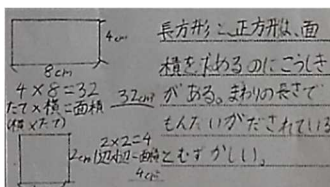 4cm
8cm
4×8=32
たて×横=面積
(横×たて)
32cm²
2cm
2×2=4
(1辺×1辺=面積)
4cm²
長方形と、正方形は、面
積を求めるのにこうしき
がある。まわりの長さで
もんだいがだされている
とむずかしい。